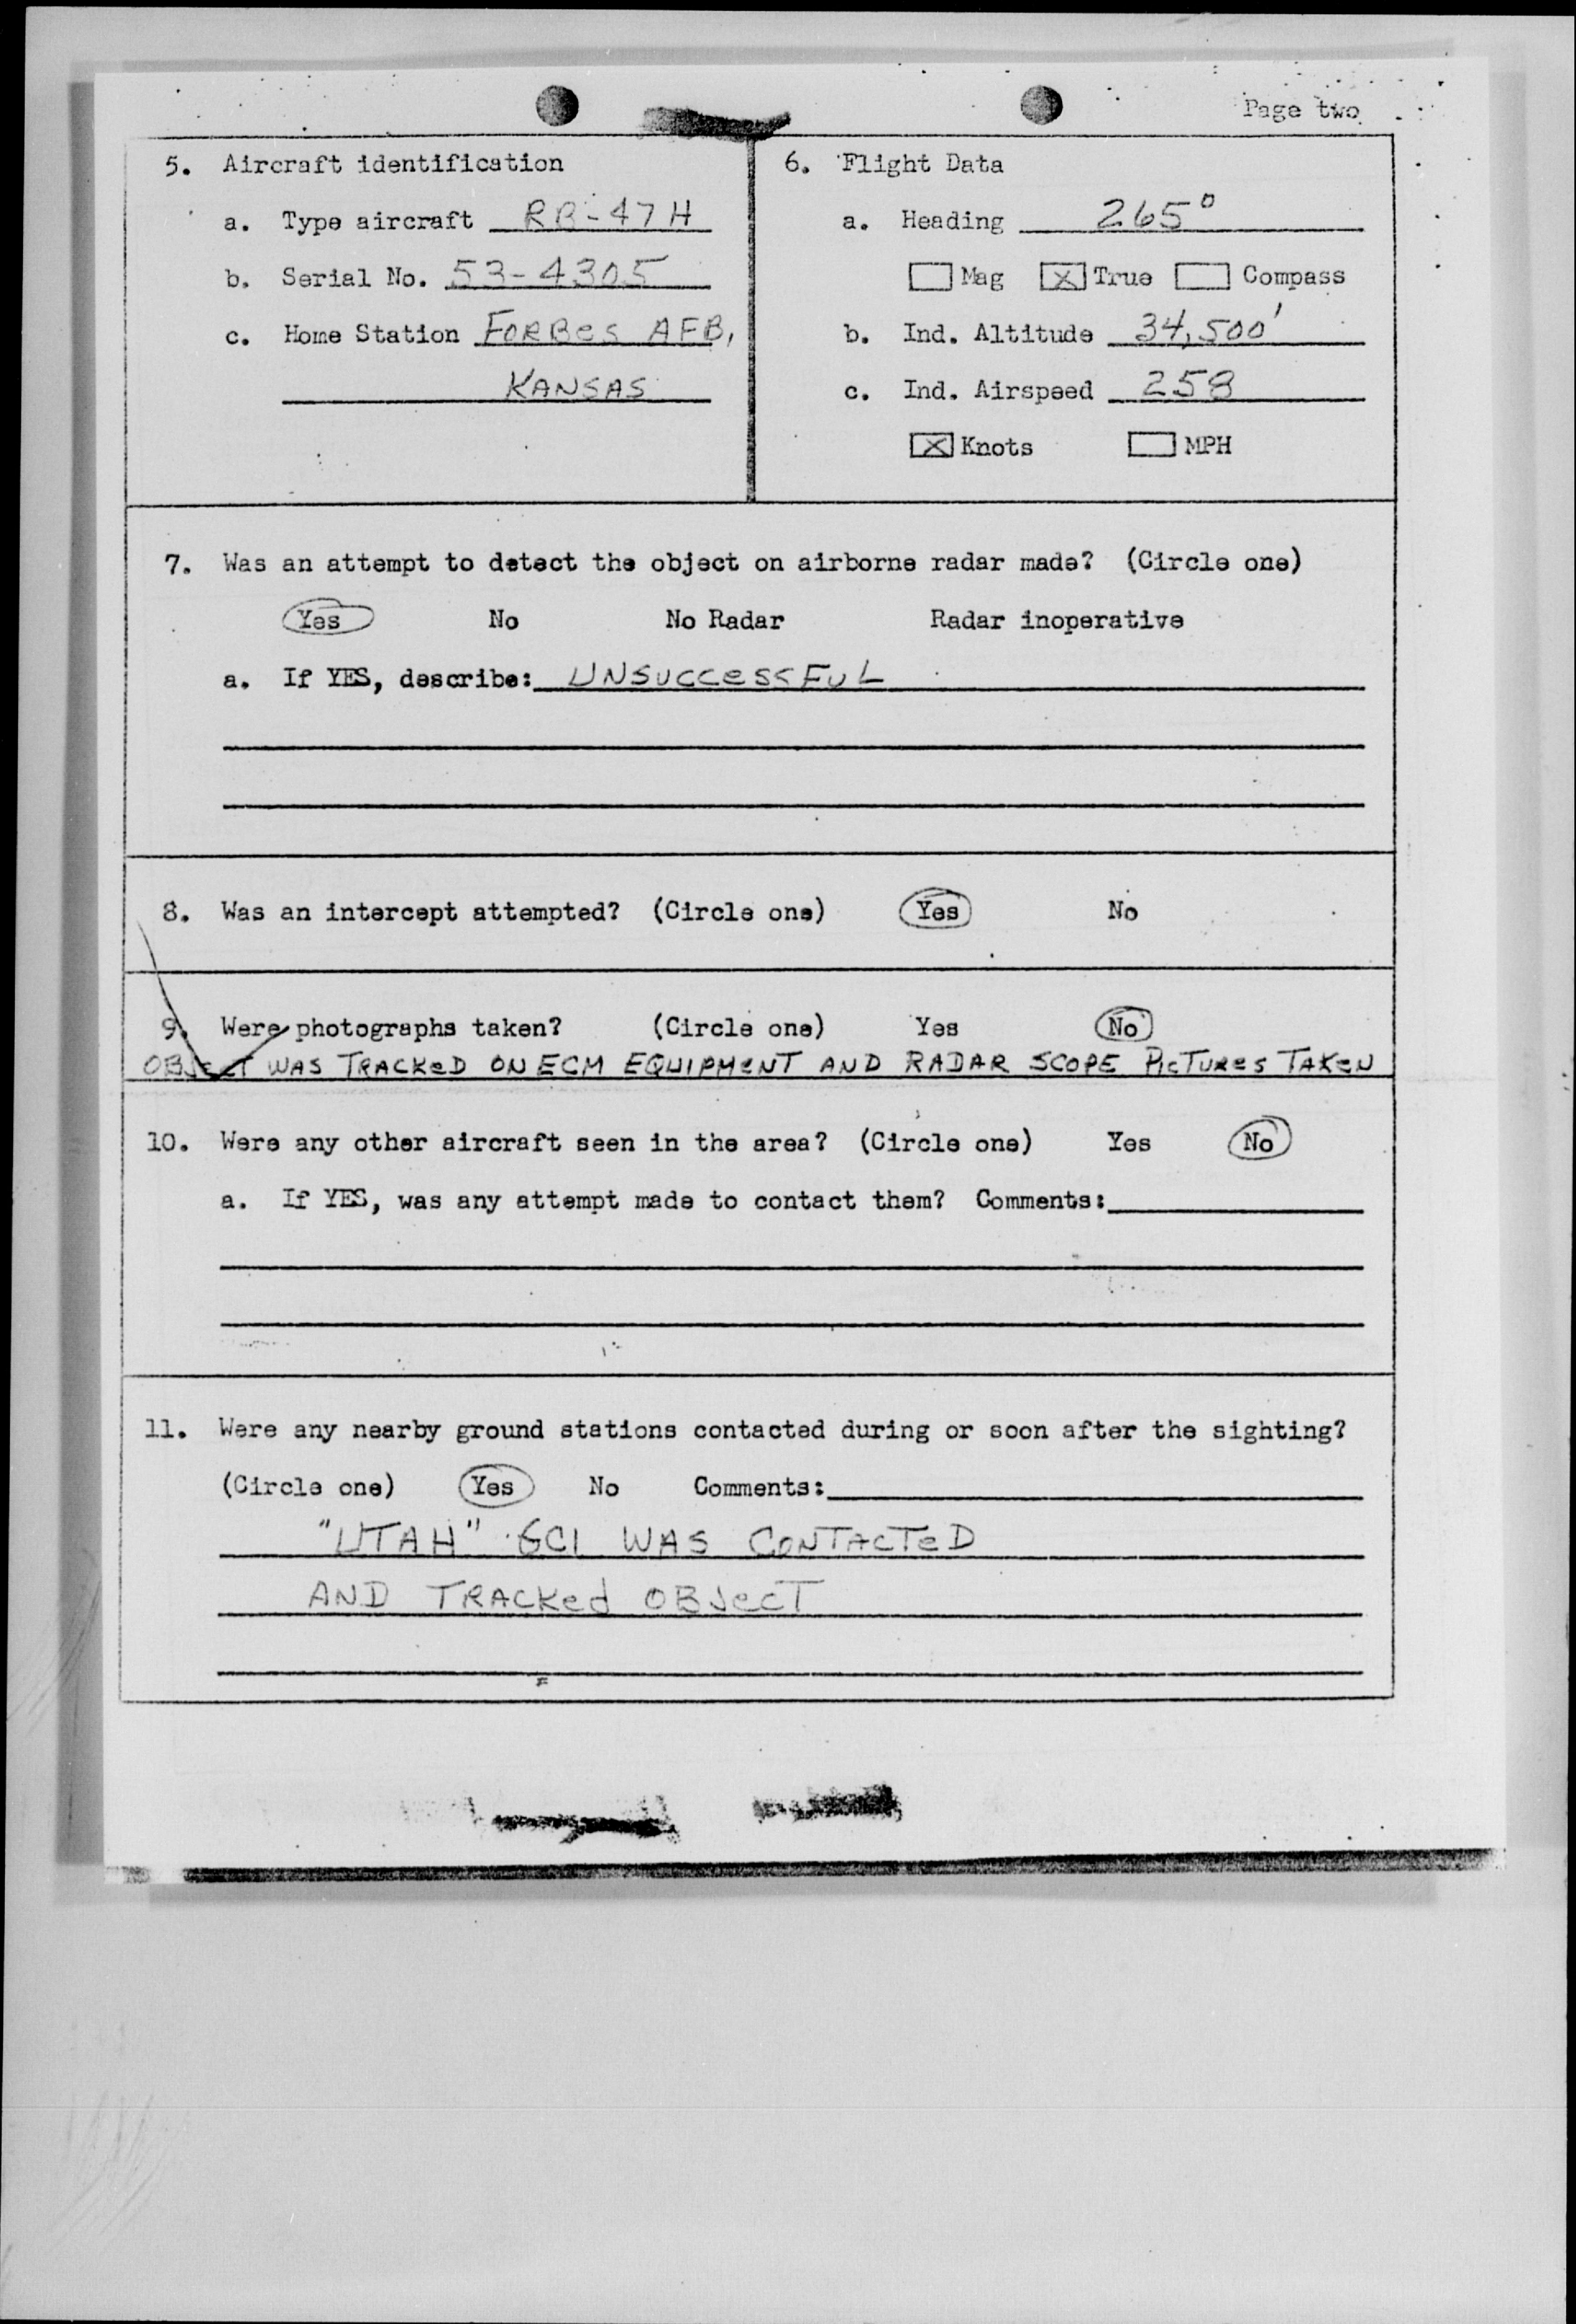 Page two
5. Aircraft identification
a. Type aircraft RB-47H
b. Serial No. 53-4305
c. Home Station FORBES AFB,
KANSAS
6. Flight Data
a. Heading 265°
Mag [X] True Compass
b. Ind. Altitude 34,500'
c. Ind. Airspeed 258
[X] Knots MPH
7. Was an attempt to detect the object on airborne radar made? (Circle one)
Yes No No Radar Radar inoperative
a. If YES, describe: UNSUCCESSFUL
8. Was an intercept attempted? (Circle one) Yes No
9. Were photographs taken? (Circle one) Yes No
OBJECT WAS TRACKED ON ECM EQUIPMENT AND RADAR SCOPE PICTURES TAKEN
10. Were any other aircraft seen in the area? (Circle one) Yes No
a. If YES, was any attempt made to contact them? Comments:
11. Were any nearby ground stations contacted during or soon after the sighting?
(Circle one) Yes No Comments:
"UTAH" GCI WAS CONTACTED
AND TRACKED OBJECT